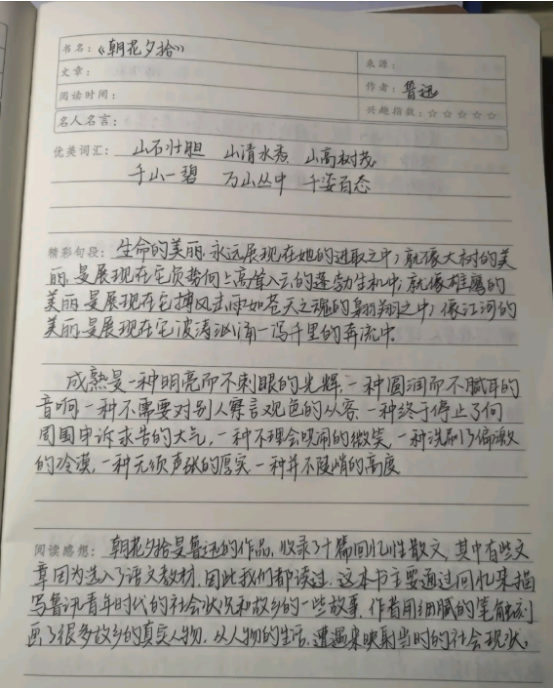 书名：《朝花夕拾》
来源：
文章：
作者：鲁迅
阅读时间：
兴趣指数：☆☆☆☆☆
名人名言：
优美词汇： 山石壮胆 山清水秀 山高树茂
千山一碧 万山丛中 千姿百态
精彩句段：生命的美丽，永远展现在她的进取之中；就像大树的美
丽，是展现在它负势向上高耸入云的蓬勃生机中；就像雄鹰的
美丽，是展现在它搏风击雨如苍天之魂的翱翔之中；像江河的
美丽是展现在它波涛汹涌一泻千里的奔流中.
成熟是一种明亮而不刺眼的光辉，一种圆润而不腻耳的
音响，一种不需要对别人察言观色的从容，一种终于停止了向
周围申诉求告的大气，一种不理会哄闹的微笑，一种洗刷了偏激
的冷漠，一种无须声张的厚实，一种并不陡峭的高度
阅读感想：朝花夕拾是鲁迅的作品，收录了十篇回忆性散文，其中有些文
章因为选入了语文教材，因此我们都读过，这本书主要通过回忆来描
写鲁迅青年时代的社会状况和故乡的一些故事，作者用细腻的笔触刻
画了很多故乡的真实人物，从人物的生活、遭遇来映射当时的社会现状.